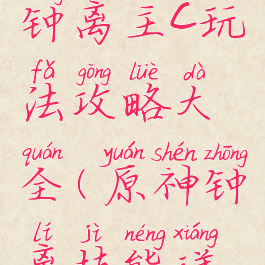 钟离主C玩
fǎ gōng lüè dà
法攻略大
quán yuán shén zhōng
全(原神钟
lí jì néng xiáng
离技能详